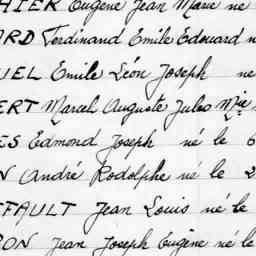 HIER Eugène Jean Marie né
ARD Ferdinand Emile Edouard n
UEL Emile Léon Joseph ne
ERT Marcel Auguste Jules Mie
ES Edmond Joseph né le 6
N André Rodolphe né le 2
FFAULT Jean Louis né le
RON Jean Joseph Eugène né le